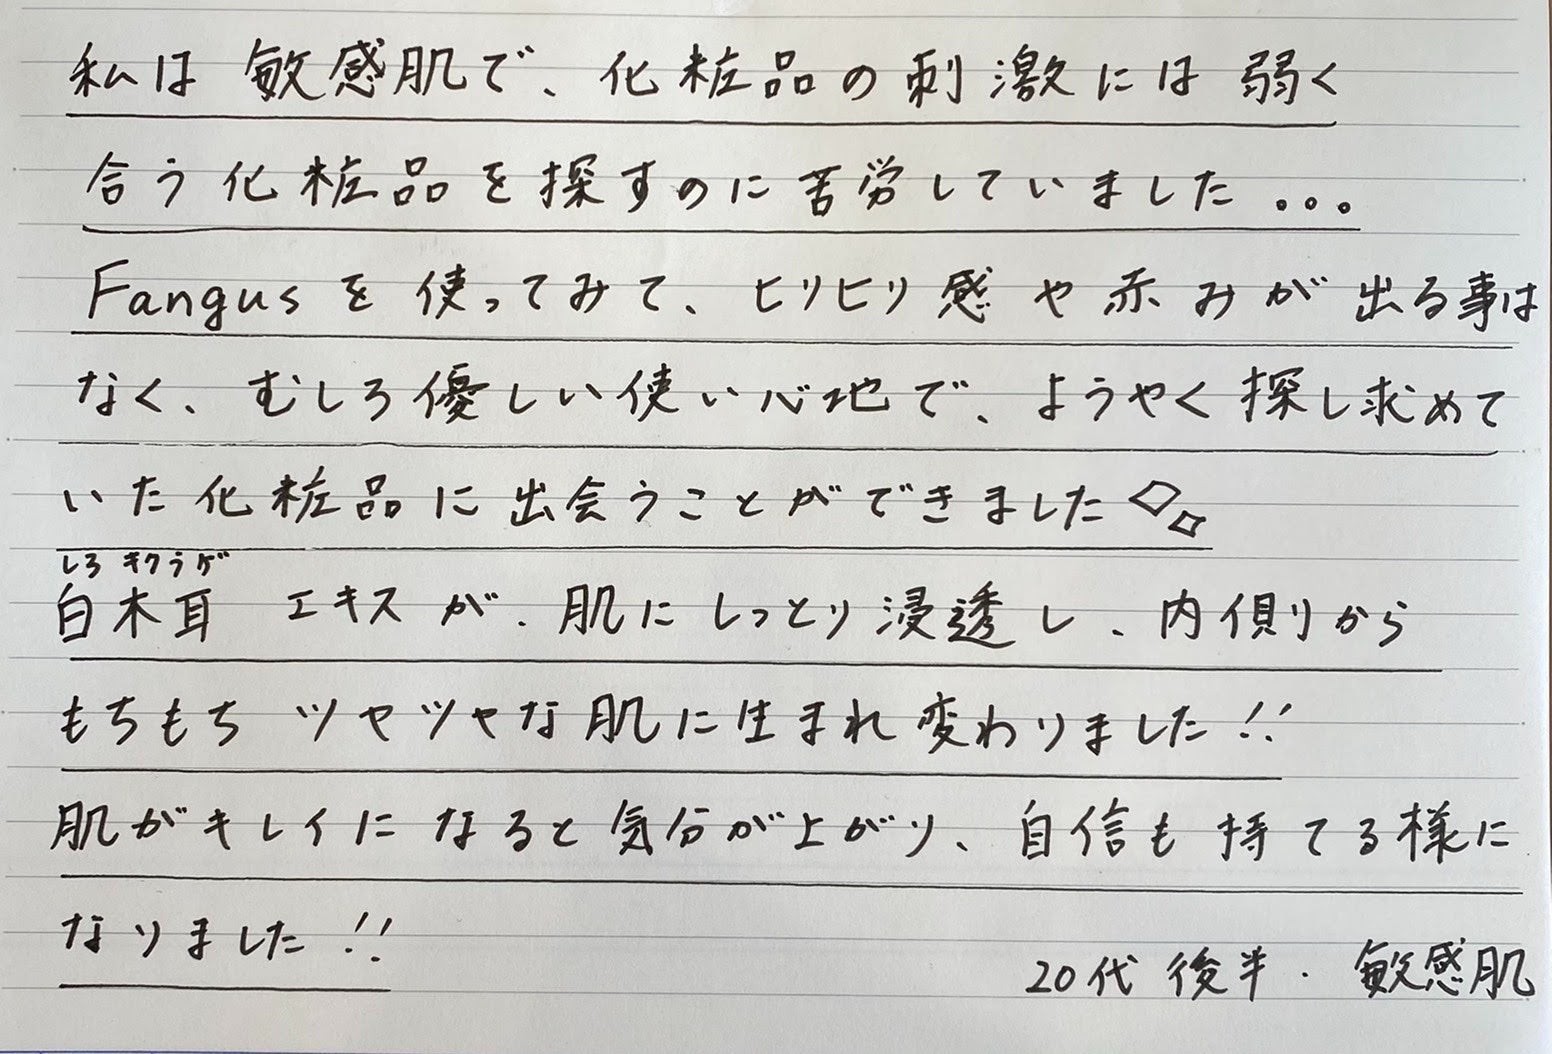 私は 敏感肌で、化粧品の刺激には 弱く
合う化粧品を探すのに苦労していました。。。
Fangusを使ってみて、ヒリヒリ感や赤みが出る事は
なく、むしろ優しい使い心地で、ようやく探し求めて
いた化粧品に出会うことができました
しろ キクラゲ
白木耳 エキスが、肌にしっとり浸透し、内側から
もちもち ツヤツヤな肌に生まれ変わりました!!
肌がキレイになると気分が上がり、自信も持てる様に
なりました!!
20代後半・敏感肌